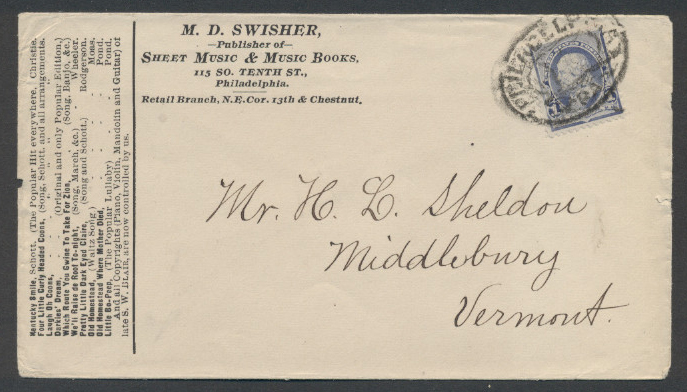 M. D. SWISHER,
—Publisher of—
SHEET MUSIC & MUSIC BOOKS,
115 SO. TENTH ST.,
Philadelphia.
Retail Branch, N.E. Cor. 13th & Chestnut.
Kentucky Smile, Schott. (The Popular Hit everywhere,) Christie.
Four Little Curly Headed Coons, (Song, Schott, and all arrangements.
Laugh Oh Coons, " " "
Darkies' Dream, (Original and only Popular Edition.)
Which Route You Gwine To Take For Zion, (Song, Banjo, &c.)
We'll Raise de Roof To-night, (Song, March, &c.) Wheeler.
Pretty Little Dark Eyed Claire, (Song and Schott.) Rodgerson.
Old Homestead, (Waltz Song.) Moss.
Old Homestead Where Mother Died, Pond.
Little Bo-Peep, (The Popular Lullaby) Pond.
And all Copyrights (Piano, Violin, Mandolin and Guitar) of
late S. W. BLAIR, are now controlled by us.
Mr. H. L. Sheldon
Middlebury
Vermont.